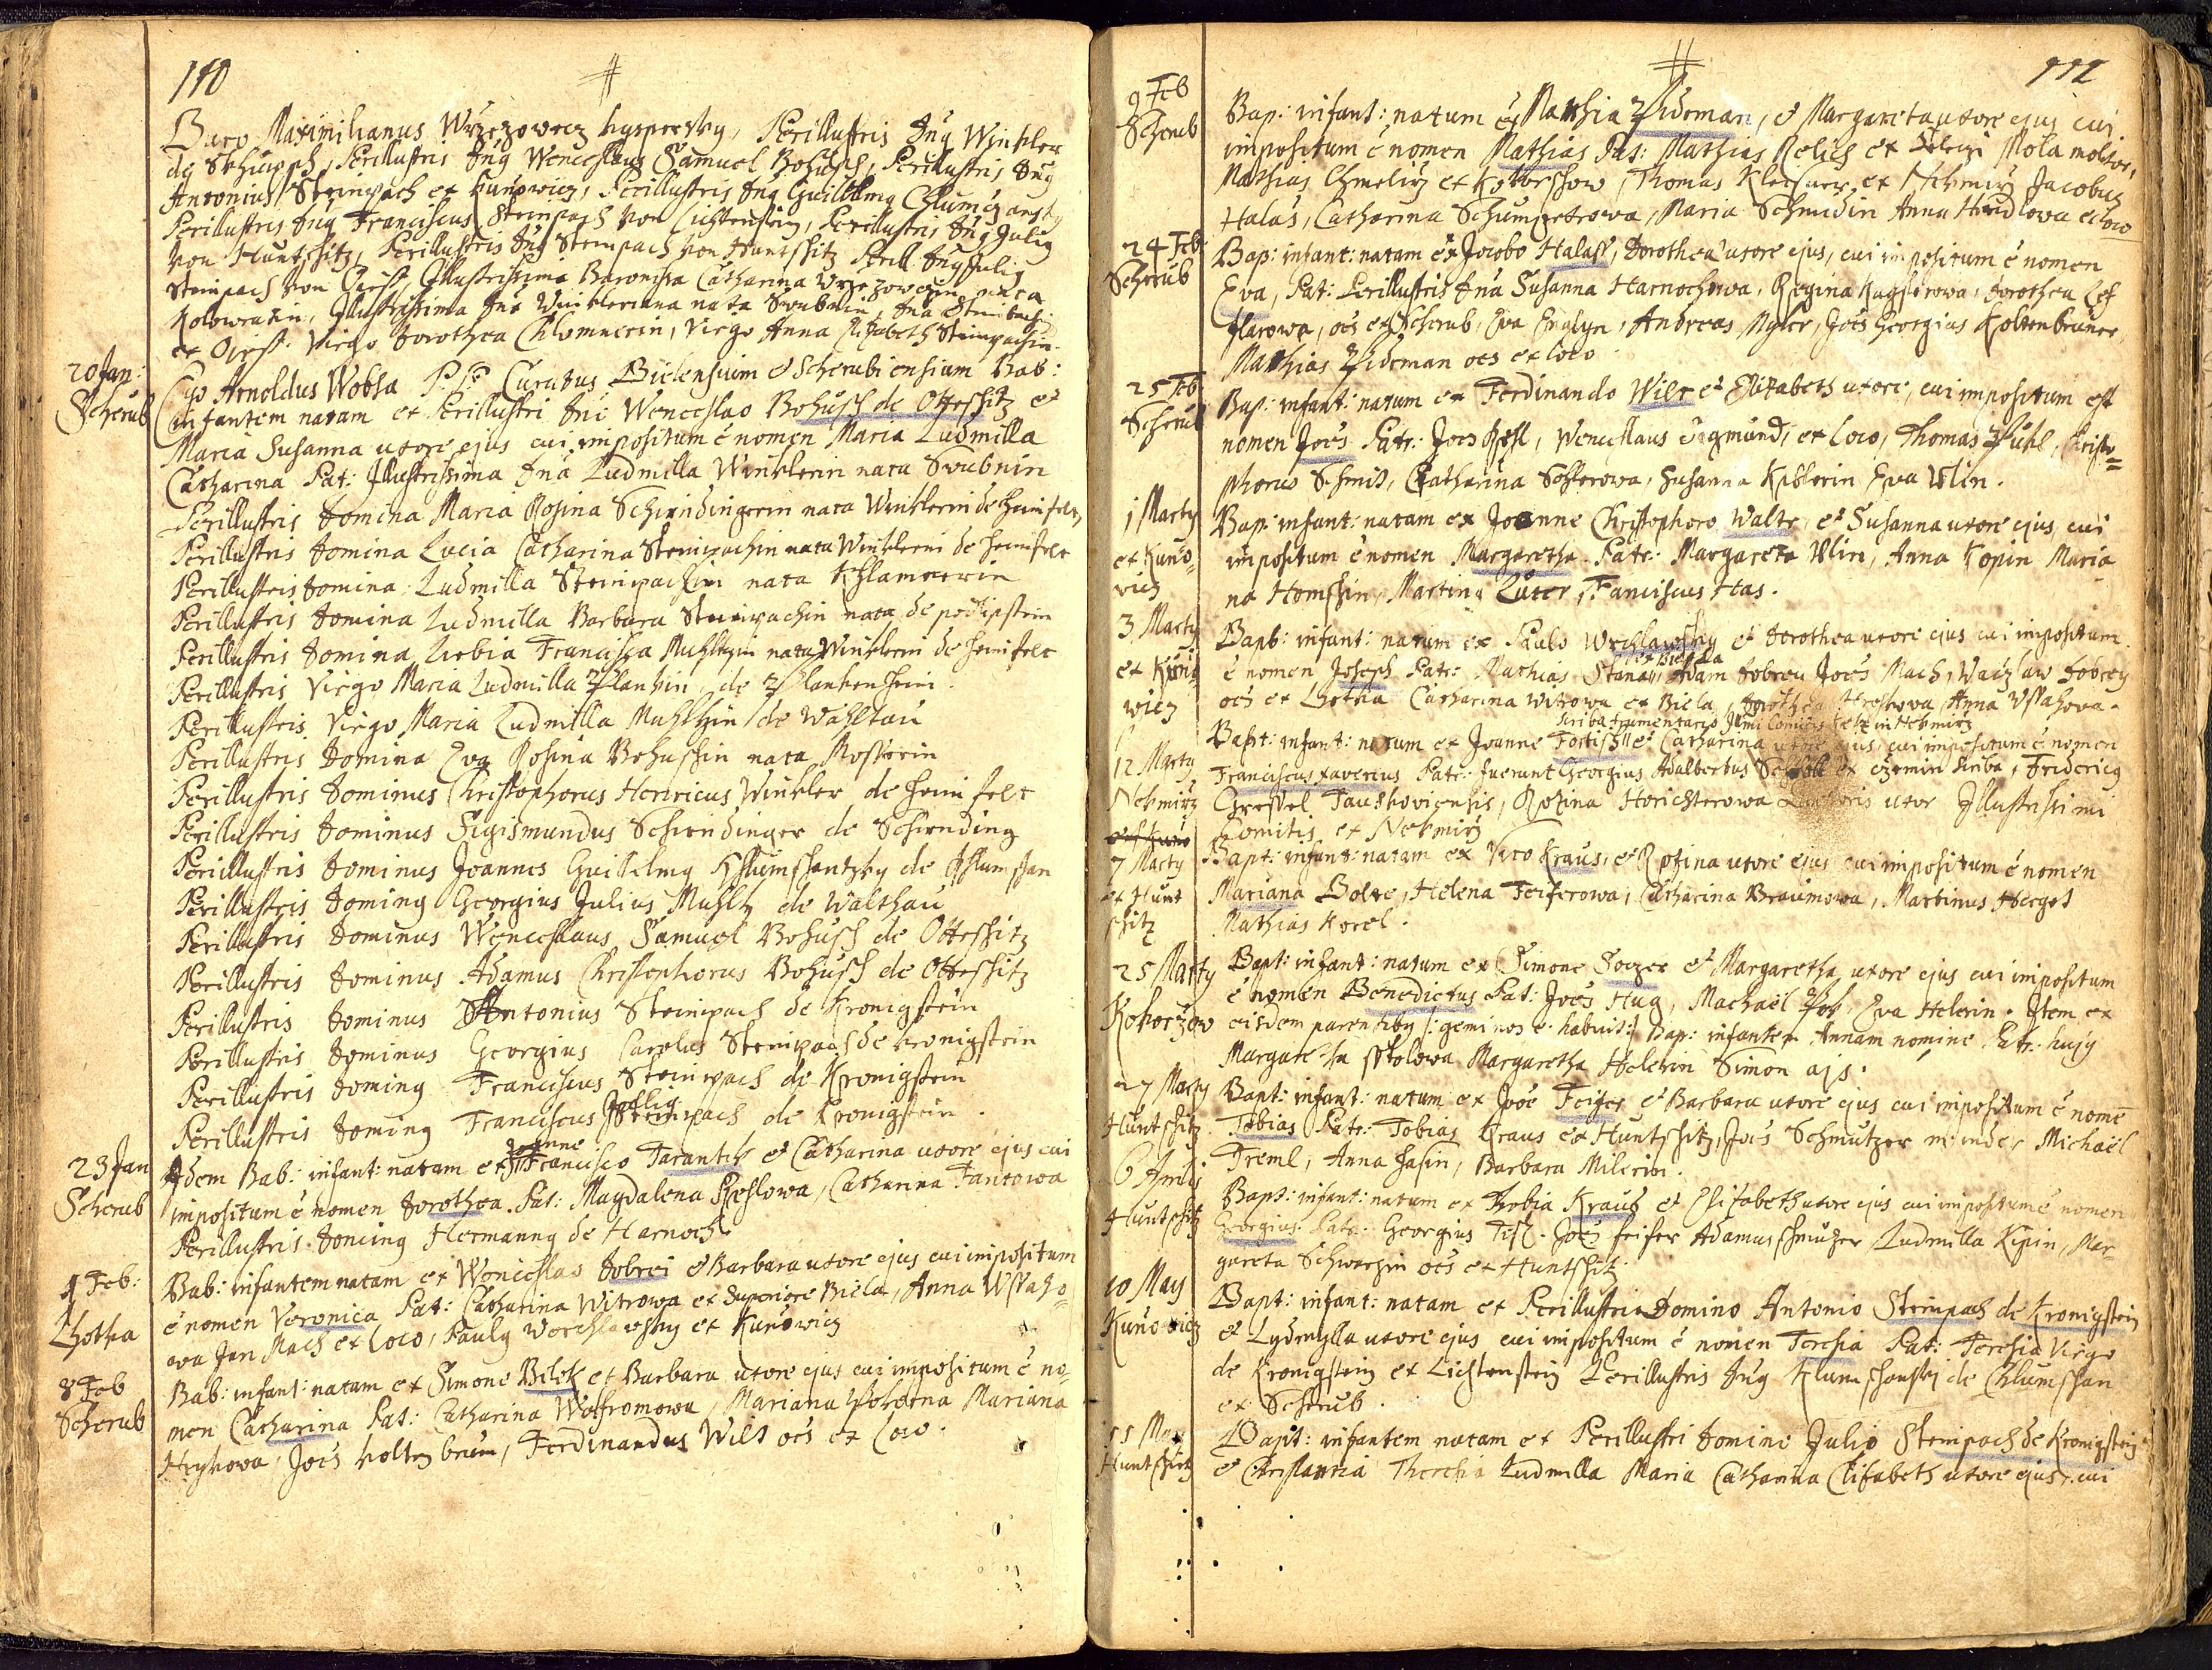 110
#
Baro Maximilianus Wrzezowecz hyspersky, Perillustris Dnus Winkler
de Skhupsch, Perillustris Dnus Wenceslaus Samuel Bohusch, Perillustris Dnus
Antonius Steinpach ex Kunowicz, Perillustris Dnus Guillelmus Chlumczansky
Perillustris Dnus Franciscus Steinpach von Lichtenstein, Perillustris Dnus Julius
von Huntschitz, Perillustris Dnus Steinpach von Huntschitz Perill: Dnus Julius
Steinpach von Illustrissima Baronissa Catharina Wrzezowczin nata
Kolowratin, Illustrissima Dna Winklerinna nata Swubnin, Dna
ex Virgo Dorothea Chlomnerin, Virgo Anna Elizabeth Steinpachin.
20 Jan:
Scherub
Ego Arnoldus Wobsa P: P: Curatus Bielensium et Scherubiensium Bab:
infantem natam ex Perillustri Dno Wenceslao Bohusch de Otteschitz et
Maria Susanna uxore ejus cui impositum e nomen Maria Ludmilla
Catharina Pat: Illustrissima Dna Ludmilla Winklerin nata Swubnin
Perillustris Domina Maria Rosina Schirndingerin nata Winklerin de heinifelt
Perillustris Domina Lucia Catharina Steinpachin nata Winklerin de heinifelt
Perillustris Domina Ludmilla Steinpachin nata Khlamnerin
Perillustris Domina Ludmilla Barbara Steinpachin nata de pedipstein
Perillustris Domina Liebia Francisca Muhltzin nata Winklerin de heinifelt
Perillustris Virgo Maria Ludmilla Plankin de Plankenheim.
Perillustris Virgo Maria Ludmilla Muhltzin de Wahltau
Perillustris Domina Eva Rosina Bohuschin nata Mosterin
Perillustris Dominus Christophorus Henricus Winkler de heinifelt
Perillustris Dominus Sigismundus Schirndinger de Schirnding
Perillustris Dominus Joannes Guillelmus Khlumschantzky de Khlumschan
Perillustris Dominus Georgius Julius Muhltz de Walthau
Perillustris Dominus Wenceslaus Samuel Bohusch de Otteschitz
Perillustris Dominus Adamus Christophorus Bohusch de Otteschitz
Perillustris Dominus Antonius Steinpach de Kronigstein
Perillustris Dominus Georgius Carolus Steinpach de Kronigstein
Perillustris Dominus Franciscus Steinpach de Kronigstein
Perillustris Dominus Franciscus Steinpach de Kronigstein.
23 Jan
Scherub
Joanne
Idem Bab: infant: natam ex Francisco Tarantik et Catharina uxore ejus cui
impositum e nomen Dorothea. Pat: Magdalena Peslowa, Catharina Tantowa
Perillustris Dominus Hermannus de Harnoch
4 Feb:
Lhotka
Bab: infantem natam ex Wenceslao Dobrei et Barbara uxore ejus cui impositum
e nomen Veronica Pat: Catharina Witrowa ex Superiore Biela, Anna Wssaho=
wa Jan Mach ex loco, Paulus Worchlawsky ex Kunowicz
8 Feb
Scherub
Bab: infant: natam ex Simone Belek et Barbara uxore ejus cui impositum e no=
men Catharina Pat: Catharina Wolfromowa, Mariana Mariana
Heykowa, Joes holten bruner, Ferdinandus Wilt oes ex loco.
#
111
9 Feb
Scherub
Bap: infant: natum ex Mathia Pideman, et Margareta uxore ejus cui
impositum e nomen Mathias Pat: Mathias Relich ex Mola molitor,
Mathias Chmelirz ex Kokorschow, Thomas Kleisner ex Nekmirz Jacobus
Halas, Catharina Schumpetrowa, Maria Schmidin Anna Heidlowa ex loco
24 Feb:
Scherub
Bap: infant: natam ex Jacobo Halass, Dorothea uxore ejus, cui impositum e nomen
Eva, Pat: Perillustris Dna Susanna Harnochowa, Regina Kugslerowa, Dorothea Les
slarowa, oes ex Scherub, Eva Englyn, Andreas Mylir, Joes Georgius Koltenbruner,
Mathias Pideman oes ex loco.
25 Feb
Scherub
Bap: infant: natum ex Ferdinando Wilt et Elizabeth uxore, cui impositum est
nomen Joes Patr: Joes Pesl, Wenceslaus Sigmund, ex loco, Thomas Puhl, Christo=
phorus Schmid, Catharina Sosserowa, Susanna Kiblerin Eva Ulin.
1 Marty
ex Kuno=
wicz
Bap: infant: natam ex Joanne Christophoro Walte, et Susanna uxore ejus, cui
impositum e nomen Margaretha. Patr: Margareta Ulin, Anna Kopin Maria=
na Homschin, Martinus Luter, Franciscus Has.
3 Marty
ex Kuno=
wicz
Bapt: infant: natum ex Paulo Wrchlawsky et Dorothea uxore ejus cui impositum
e nomen Joseph Patr: Mathias Stana, Adam Dobrey Joes Mach, Waczlaw Dobrey
ex Biela
oes ex Lhotka Catharina Witrowa ex Biela, Dorothea Anna Wssahowa.
12 Marty
Nekmirz
scriba frumentario Illmi Comitis in Nekmirz
Bapt: infant: natum ex Joanne Fortisch et Catharina uxore ejus, cui impositum e nomen
Franciscus Xaverius Patr: fuerunt Georgius Adalbertus scriba, Fridericus
Gressel Tauskoviensis, Rozina Horichterowa uxor Illustrissimi
Comitis ex Nekmirz
7 Marty
ex Hunt
schitz
Bapt: infant: natam ex Vito Kraus, et Rozina uxore ejus cui impositum e nomen
Mariana Bolte, Helena Feiferowa, Catharina Braunowa, Martinus Herget
Mathias Korel.
25 Marty
Kokorzow
Bapt: infant: natum ex Simone Soczer et Margaretha uxore ejus cui impositum
e nomen Benedictus Pat: Joes Hug, Machaël Eva Helerin. Item ex
eisdem parentibus /: geminos e: habuit :/ Bap: infantem Annam nomine Patr: hujus
Margaretha sskolowa Margaretha Helerin Simon ajs.
27 Marty
Huntschitz
Bapt: infant: natum ex Joe Feifer et Barbara uxore ejus cui impositum e nome
Tobias Patr: Tobias Kraus ex Huntschitz, Joes Schmutzer Michaël
Treml, Anna Hasin, Barbara Milerin.
6 Aprilis
Huntschitz
Bapt: infant: natum ex Thobia Kraus et Elisabeth uxore ejus cui impositum e nomen
Georgius. Patr: Georgius Tisl. Joes feifer Adamus schmutzer Ludmilla Kipin, Mar=
gareta Schwarzin oes ex Huntschitz.
10 May
Kunowicz
Bapt: infant: natam ex Perillustri Domino Antonio Steinpach de Kronigstein
et Lydmylla uxore ejus cui impositum e nomen Teresia Pat: Teresia Virgo
de Kronigstein ex Lichtenstein Perillustris Dnus Klumschansky de Chlumschan
ex Scherub.
15 May
Huntschitz
Bapt: infantem natam ex Perillustri Domino Julio Steinpach de Kronigstein
et Theresia Ludmilla Maria Catharina Elisabeth uxore ejus, cui